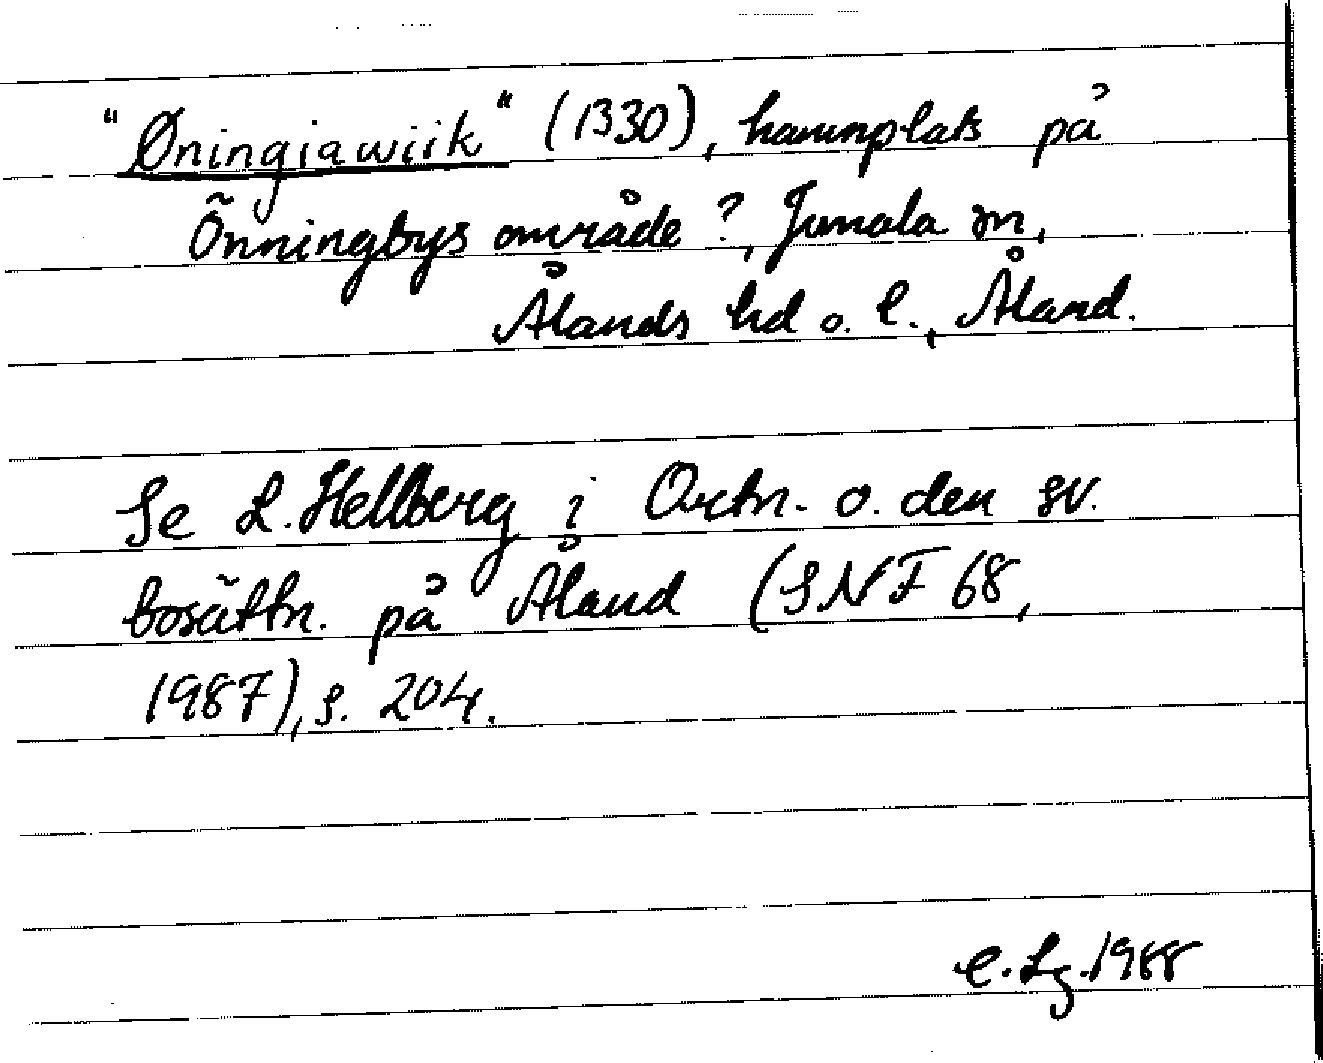 "Øningiawiik" (1330), hamnplats på
Önningbys område?, Jomala sn,
Ålands hd o. l., Åland.
Se L. Hellberg i Ortn. o. den sv.
bosättn. på Åland (SNF 68,
1987), s. 204.
C. Lg. 1988